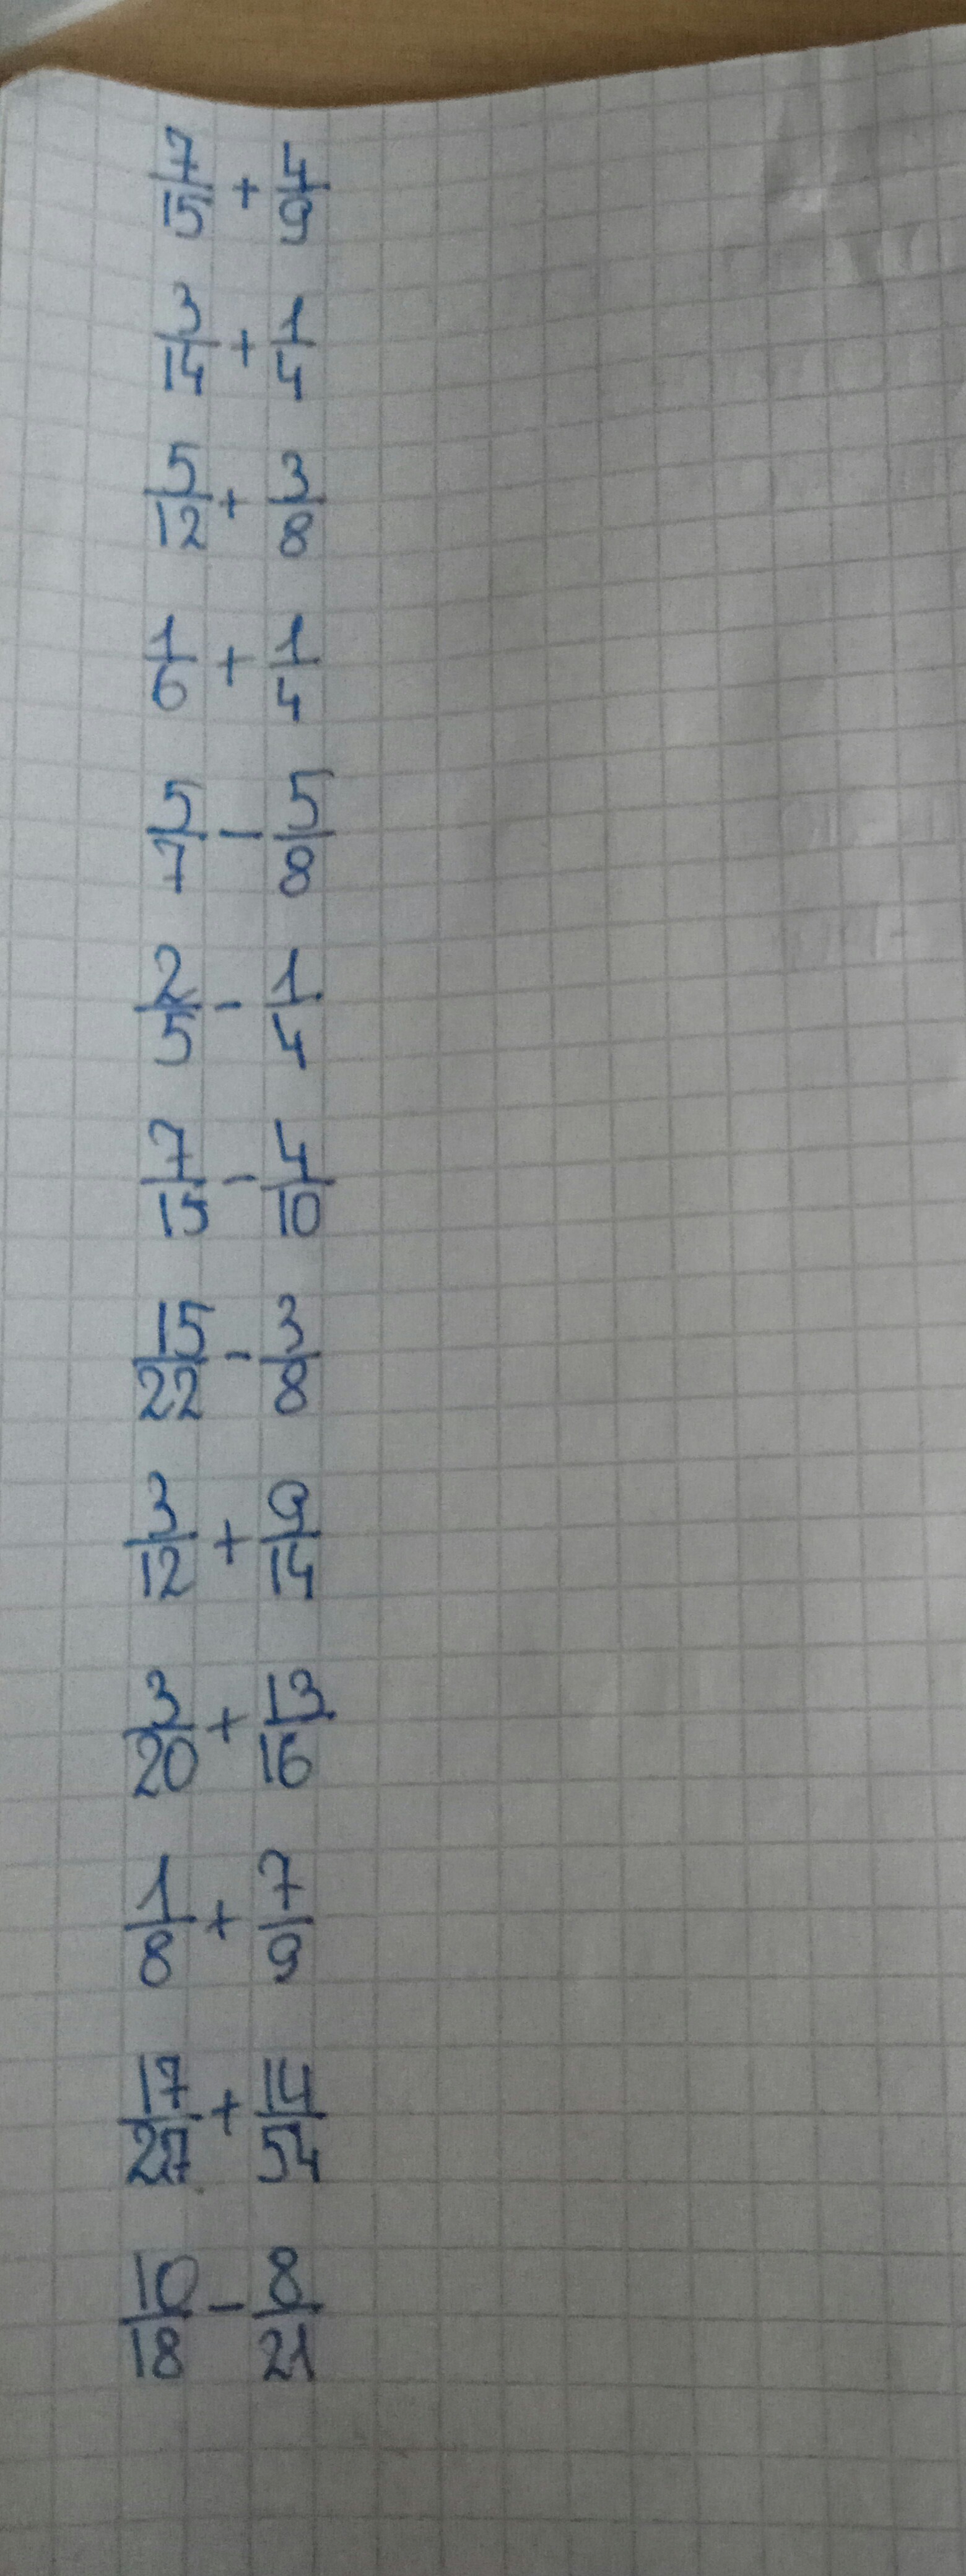 7/15 + 4/9
3/14 + 1/4
5/12 + 3/8
1/6 + 1/4
5/7 - 5/8
2/5 - 1/4
7/15 - 4/10
15/22 - 3/8
3/12 + 9/14
3/20 + 13/16
1/8 + 7/9
17/27 + 14/54
10/18 - 8/21